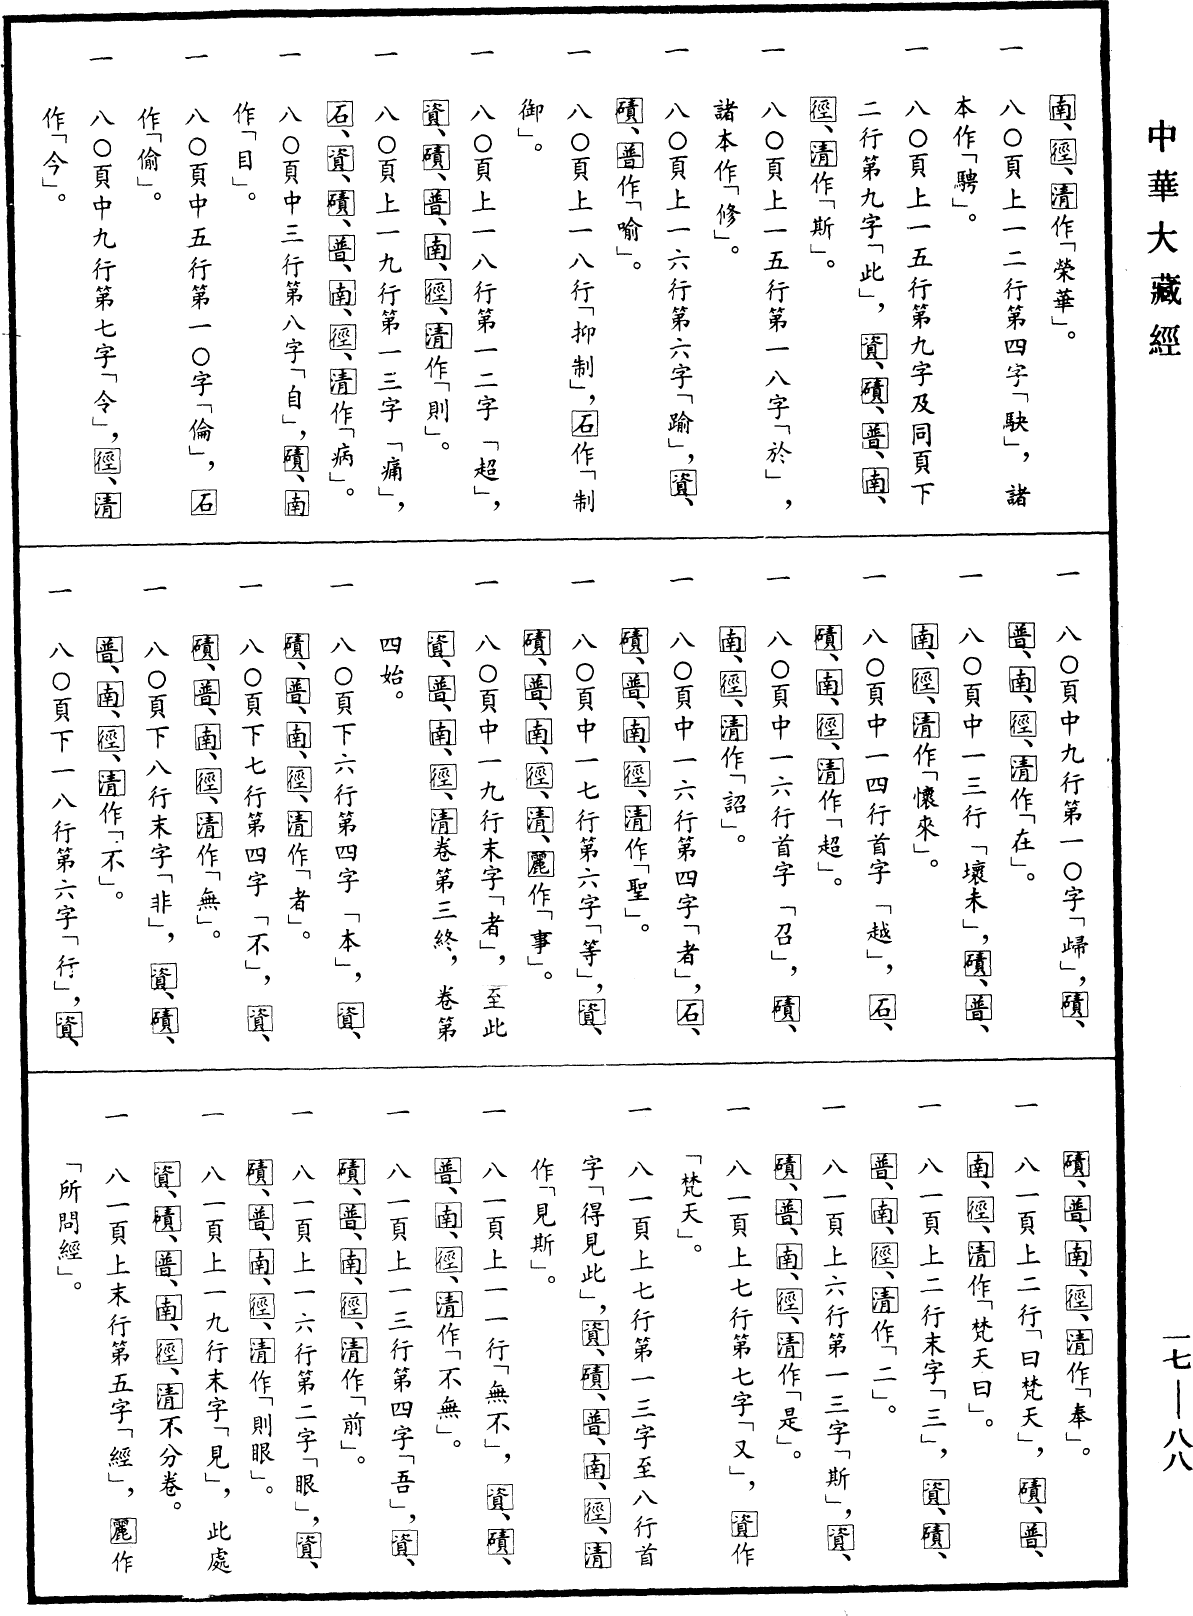 中華大藏經
南、徑、清作「榮華」。
一　八〇頁上一二行第四字「駚」，諸
本作「騁」。
一　八〇頁上一五行第九字及同頁下
二行第九字「此」，資、磧、普、南、
徑、清作「斯」。
一　八〇頁上一五行第一八字「於」，
諸本作「修」。
一　八〇頁上一六行第六字「踰」，資、
磧、普作「喻」。
一　八〇頁上一八行「抑制」，石作「制
御」。
一　八〇頁上一八行第一二字「超」，
資、磧、普、南、徑、清作「則」。
一　八〇頁上一九行第一三字「痛」，
石、資、磧、普、南、徑、清作「病」。
一　八〇頁中三行第八字「自」，磧、南
作「目」。
一　八〇頁中五行第一〇字「倫」，石
作「偷」。
一　八〇頁中九行第七字「令」，徑、清
作「今」。
一　八〇頁中九行第一〇字「歸」，磧、
普、南、徑、清作「在」。
一　八〇頁中一三行「壞未」，磧、普、
南、徑、清作「懷來」。
一　八〇頁中一四行首字「越」，石、
磧、南、徑、清作「超」。
一　八〇頁中一六行首字「召」，磧、
南、徑、清作「詔」。
一　八〇頁中一六行第四字「者」，石、
磧、普、南、徑、清作「聖」。
一　八〇頁中一七行第六字「等」，資、
磧、普、南、徑、清、麗作「事」。
一　八〇頁中一九行末字「者」，至此
資、普、南、徑、清卷第三終，卷第
四始。
一　八〇頁下六行第四字「本」，資、
磧、普、南、徑、清作「者」。
一　八〇頁下七行第四字「不」，資、
磧、普、南、徑、清作「無」。
一　八〇頁下八行末字「非」，資、磧、
普、南、徑、清作「不」。
一　八〇頁下一八行第六字「行」，資、
磧、普、南、徑、清作「奉」。
一　八一頁上二行「曰梵天」，磧、普、
南、徑、清作「梵天曰」。
一　八一頁上二行末字「三」，資、磧、
普、南、徑、清作「二」。
一　八一頁上六行第一三字「斯」，資、
磧、普、南、徑、清作「是」。
一　八一頁上七行第七字「又」，資作
「梵天」。
一　八一頁上七行第一三字至八行首
字「得見此」，資、磧、普、南、徑、清
作「見斯」。
一　八一頁上一一行「無不」，資、磧、
普、南、徑、清作「不無」。
一　八一頁上一三行第四字「吾」，資、
磧、普、南、徑、清作「前」。
一　八一頁上一六行第二字「眼」，資、
磧、普、南、徑、清作「則眼」。
一　八一頁上一九行末字「見」，此處
資、磧、普、南、徑、清不分卷。
一　八一頁上末行第五字「經」，麗作
「所問經」。
一七—八八